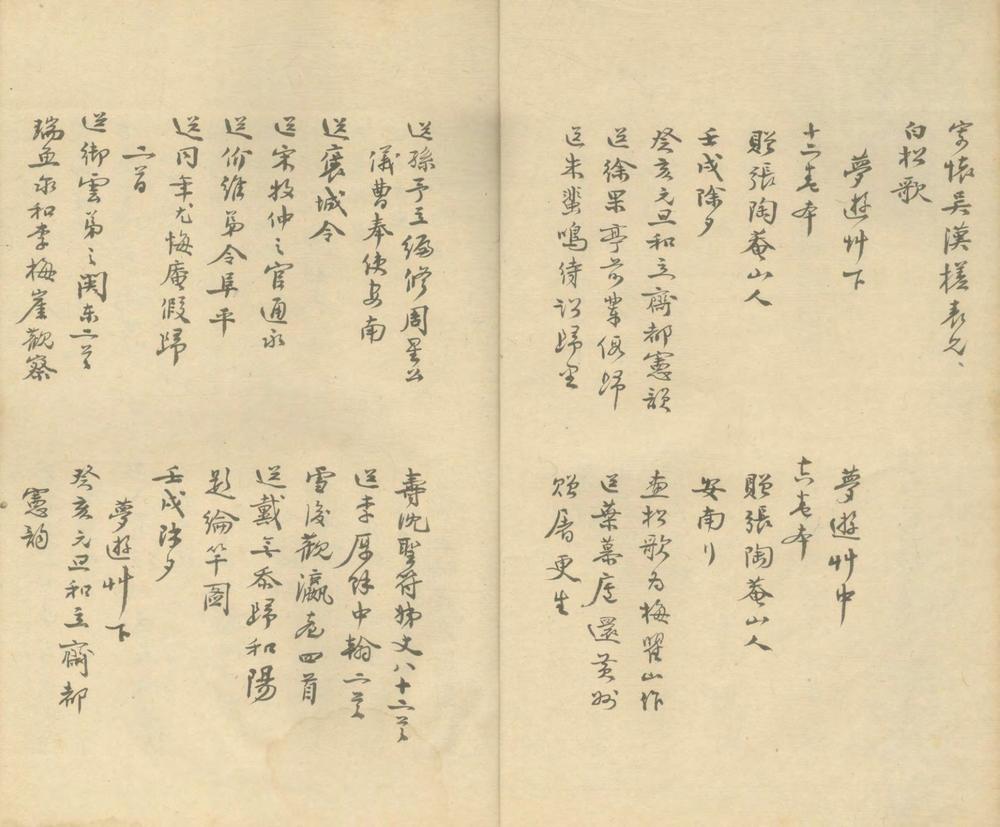 寄懷吳漢槎表兄、
白松歌
夢遊艸下
十二卷本
贈張陶菴山人
壬戌除夕
癸亥元旦和立齋都憲韻
送徐果亭前輩假歸
送朱蜚鳴待詔歸里
夢遊艸中
十六卷本
贈張陶菴山人
安南行
画松歌為梅瞿山作
送葉慕廬還黃州
贈屠更生
送孫予立編修周星公
儀曹奉使安南
送襄城令
送宋牧仲之官通永
送价維弟令阜平
送同年尤悔庵假歸
二首
送御雲弟之関东二首
瑞和李梅崖觀察
壽沈聖符姊丈八十二首
送李厚餘中翰二首
雪後觀瀛臺四首
送戴无忝歸和陽
題綸竿圖
壬戌除夕
夢遊艸下
癸亥元旦和立齋都
憲韵